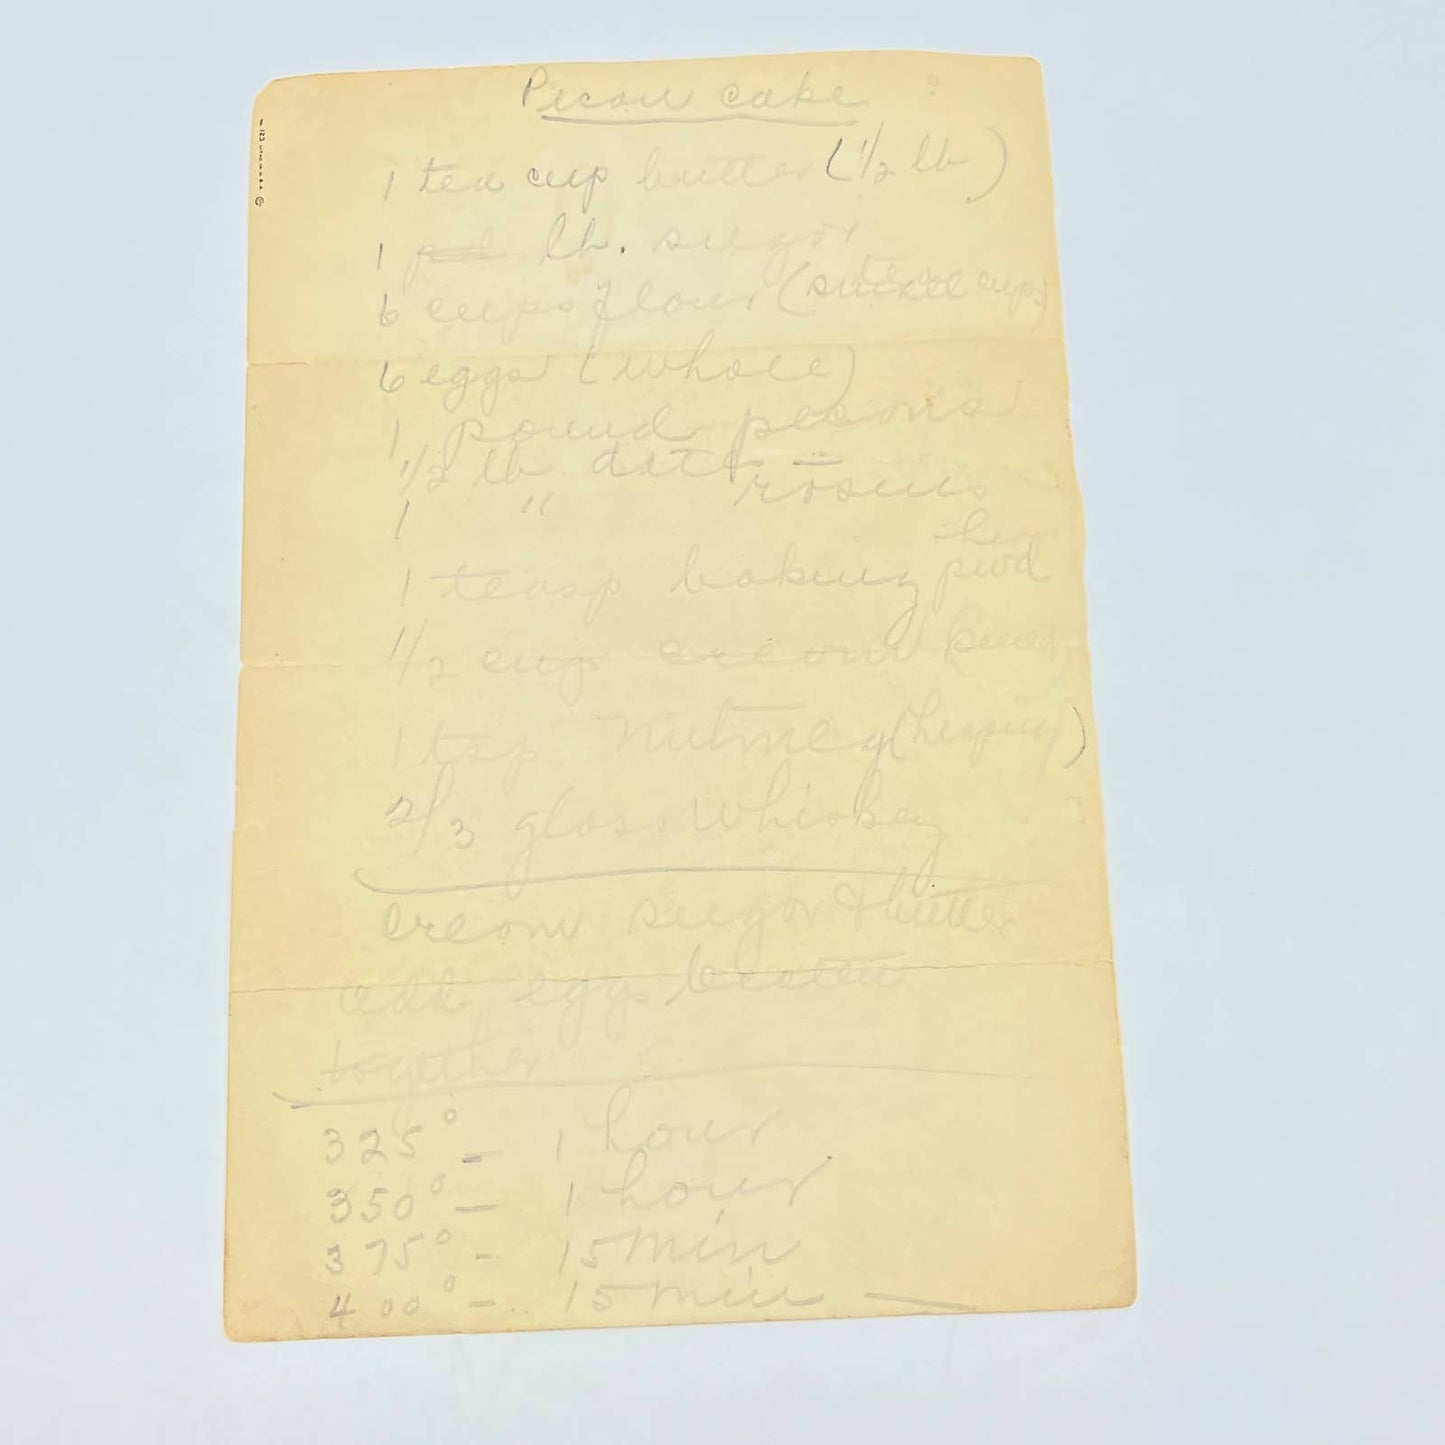 Pecan cake
1 tea cup butter (1/2 lb)
1 lb. sugar
6 cups flour (tea cups)
6 eggs (whole)
1 pound pecans
1/2 lb. dates
1 " rasins
1 teasp baking pwd
1/2 cup cream
1 tsp. nutmeg (heaping)
2/3 glass whiskey
cream sugar & butter
add eggs beaten
together
325° - 1 hour
350° - 1 hour
375° - 15 min
400° - 15 min